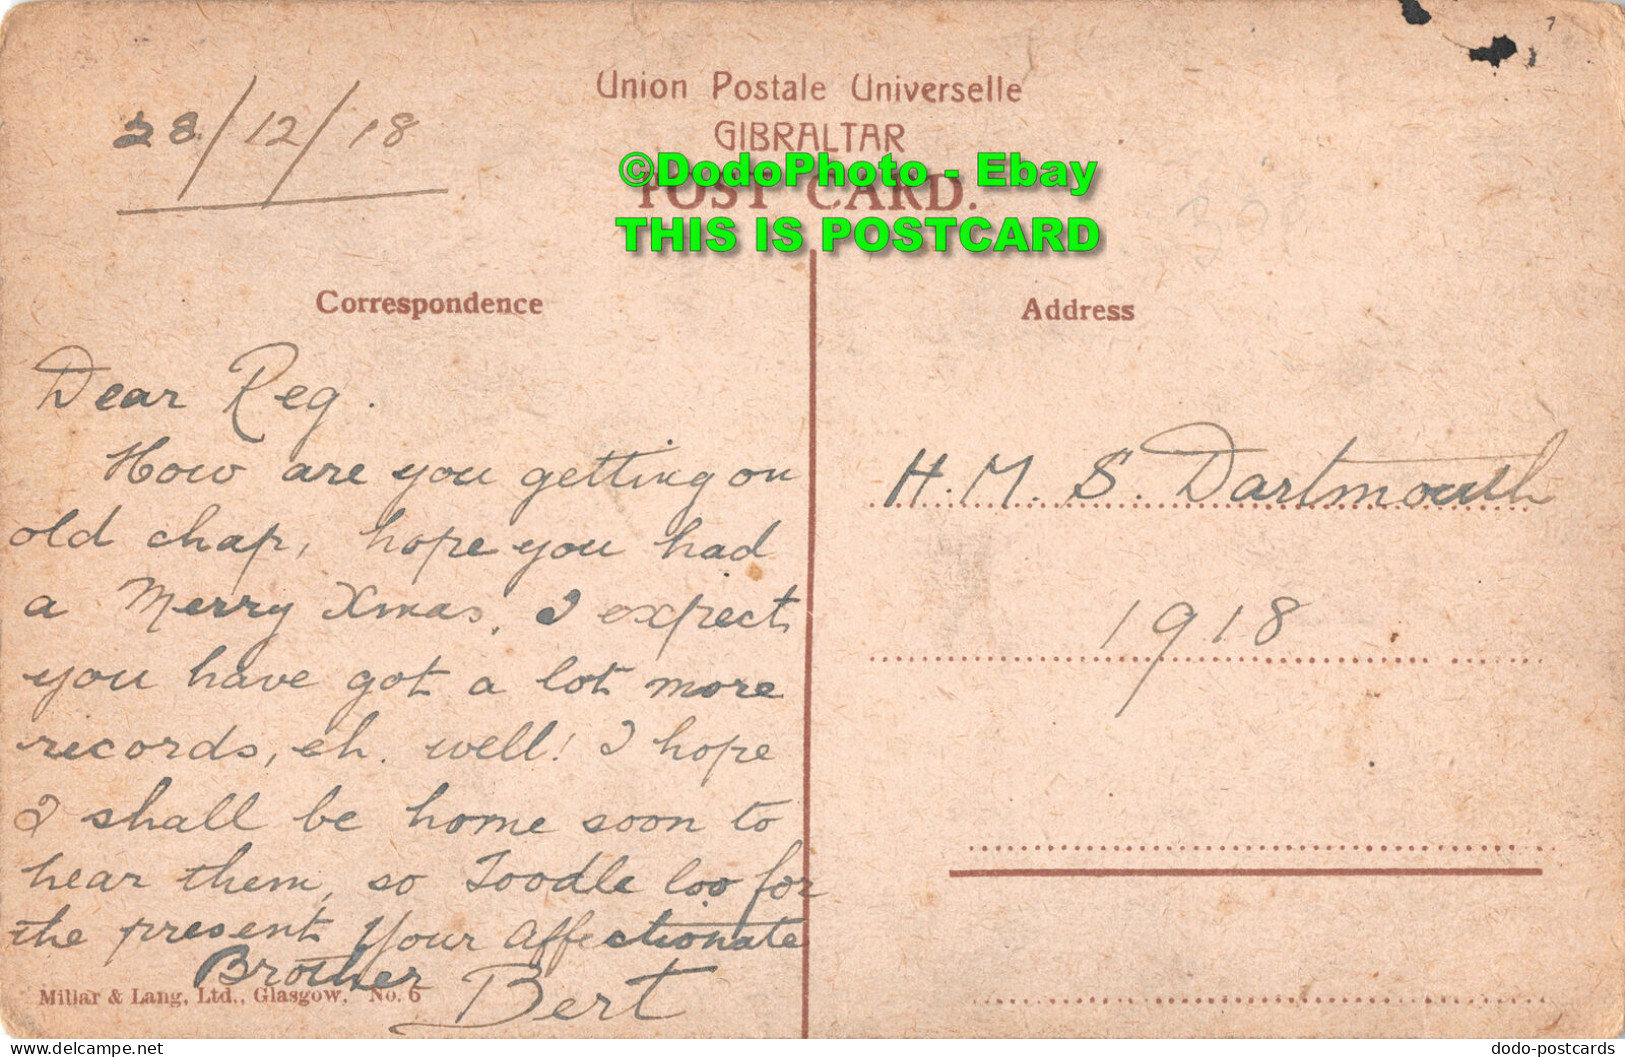 28/12/18
Union Postale Universelle
GIBRALTAR
POST CARD.
©DodoPhoto - Ebay
THIS IS POSTCARD
Correspondence
Dear Reg.
How are you getting on
old chap, hope you had
a Merry Xmas, I expect
you have got a lot more
records, eh. well! I hope
I shall be home soon to
hear them, so Toodle loo for
the present, Your Affectionate
Brother Bert
Millar & Lang, Ltd., Glasgow. No. 6
Address
H.M.S. Dartmouth
1918
delcampe.net
dodo-postcards